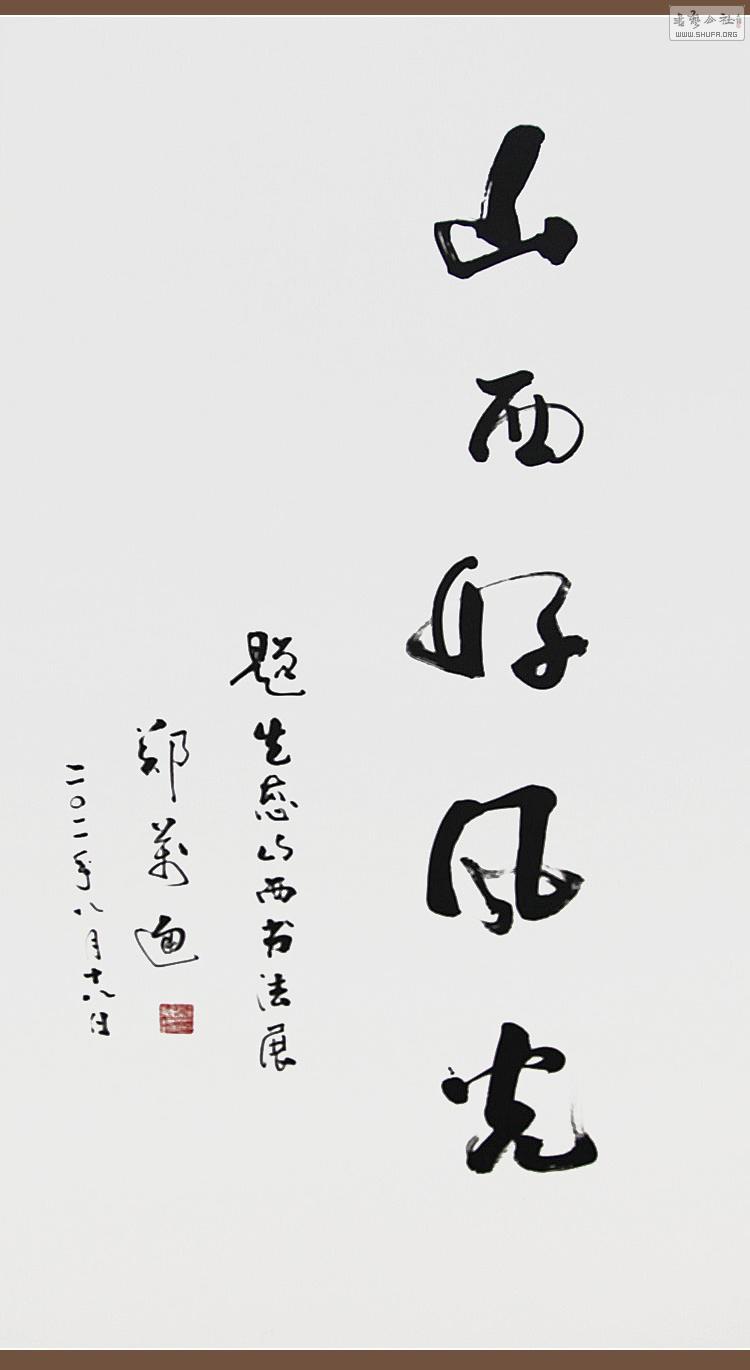 山西好风光
题生态山西书法展
郑万通
二〇一一年八月十八日
WWW.SHUFA.ORG